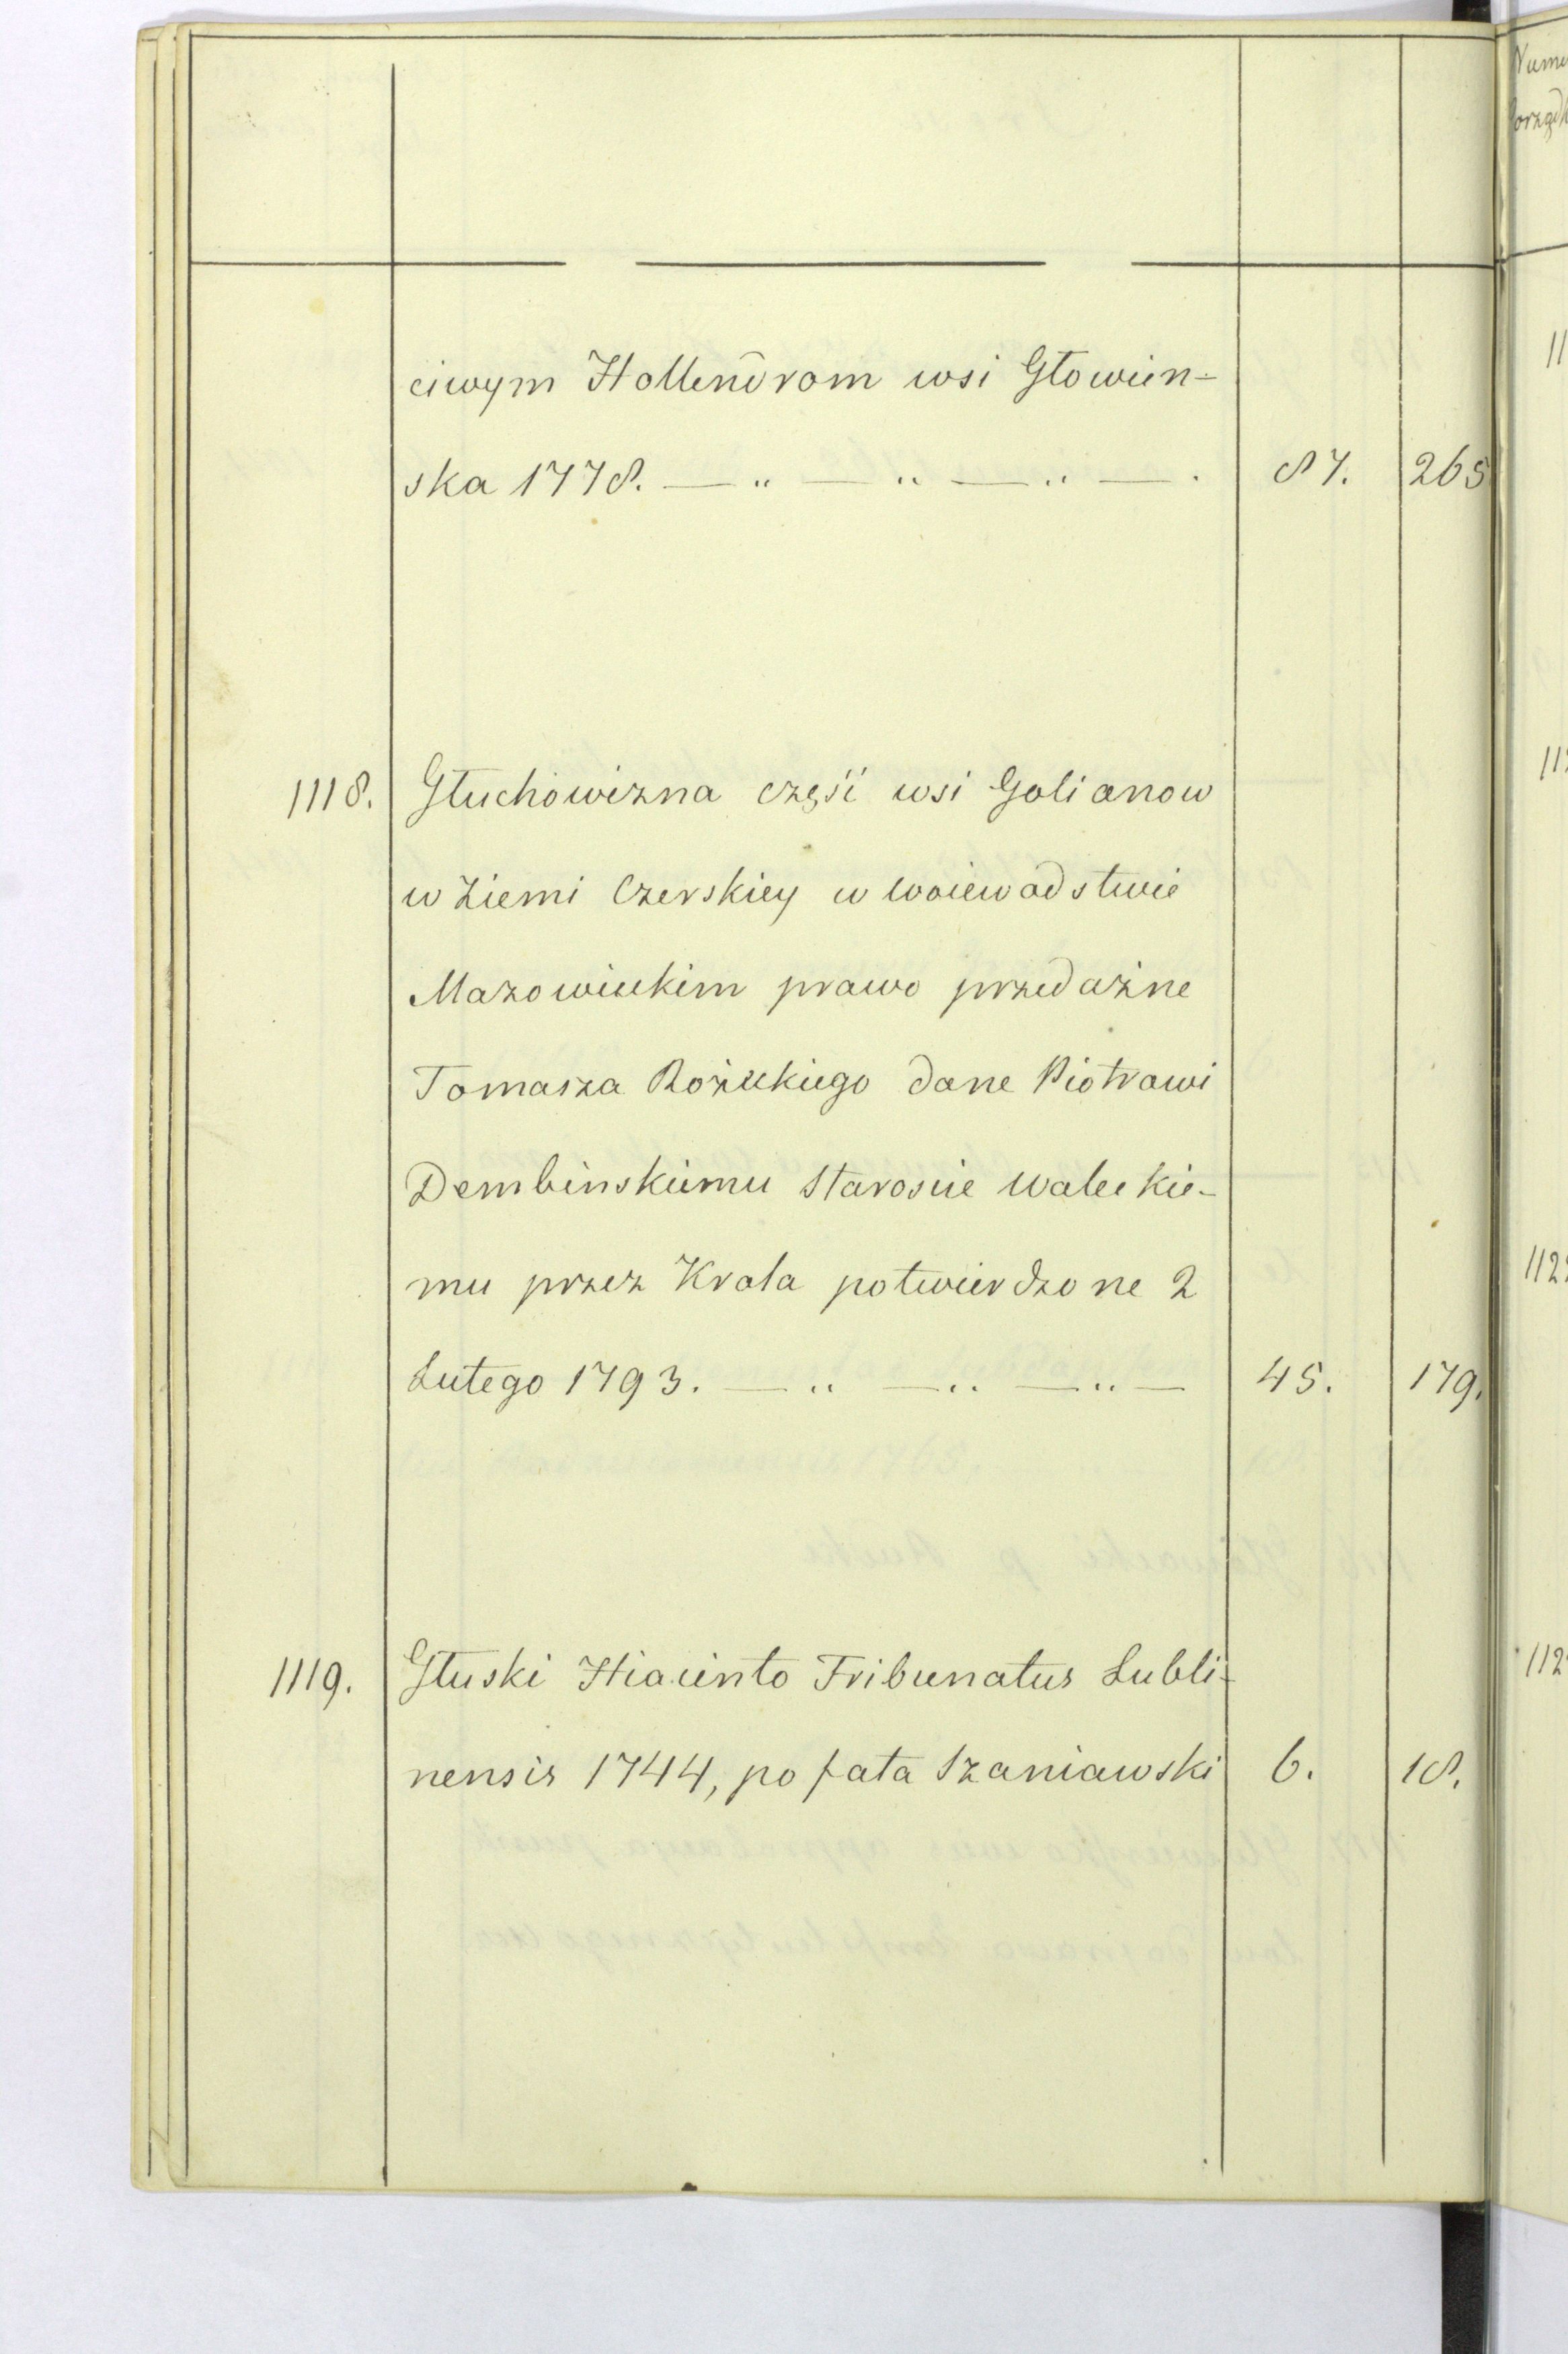 ciwym Hollendrom wsi Głowien-
ska 1778. — „ — „ — „ — . 87. 265
1118. Głuchowizna część wsi Golianow
w Ziemi Czerskiey w Woiewodstwie
Mazowieckim prawo przedażne
Tomasza Rożeckiego dane Piotrowi
Dembinskiemu Staroscie Waleckie-
mu przez Krola potwierdzone 2
Lutego 1793. — „ — „ — „ — 45. 179.
1119. Głuski Hiacinto Tribunatus Lubli-
nensis 1744, po fata Szaniawski 6. 18.